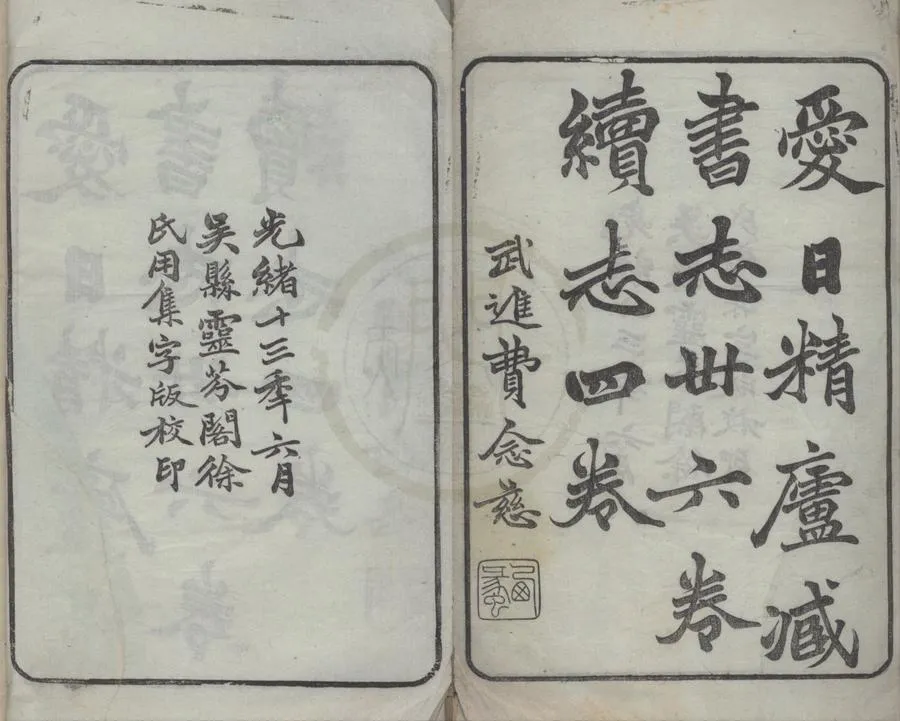 愛日精廬臧
書志卅六卷
續志四卷
武進費念慈
光緒十三年六月
吳縣靈芬閣徐
氏用集字版校印